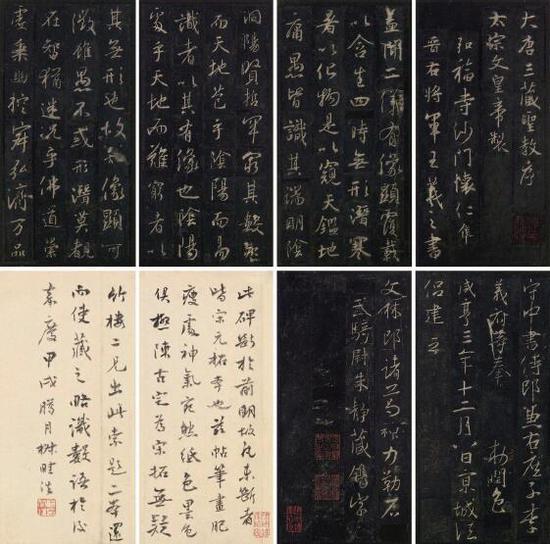 大唐三藏聖教序
太宗文皇帝製
弘福寺沙門懷仁集
晉右將軍王羲之書
蓋聞二儀有像顯覆載
以含生四時無形潛寒
暑以化物是以窺天鑑地
庸愚皆識其端明陰
洞陽賢哲罕窮其數然
而天地苞乎陰陽而易
識者以其有像也陰陽
處乎天地而難窮者以
其無形也故知像顯可
徵雖愚不惑形潛莫覩
在智猶迷況乎佛道崇
虛乘幽控寂弘濟万品
守中書侍郎兼右庶子李
義府等奉 敕潤色
咸亨三年十二月八日京城法
侶建立
文林郎諸葛神力勒石
武騎尉朱靜藏鐫字
此碑斷於前明坡凡未斷者
皆宋元拓本也茲帖筆畫肥
瘦處神氣宛然紙色墨色
俱極陳古定為宋拓無疑
竹樓二兄出此索題
藏之略識數語於後
嘉慶甲戌臘月